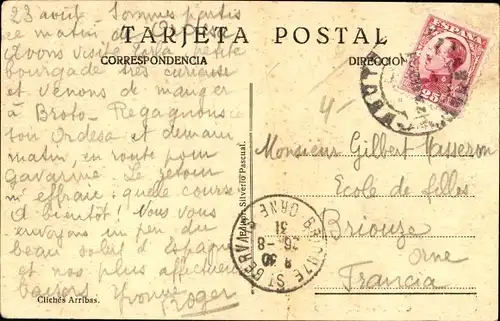 TARJETA POSTAL
CORRESPONDENCIA
DIRECCION
23 août - Sommes partis
ce matin de
Avons visité petite
bourgade très curieuse
et venons de manger
à Broto - Regagnons
Ordesa et demain
matin, en route pour
Gavarnie. Le retour
m'effraie : quelle course
A bientôt ! Nous vous
envoyons un peu du
beau soleil d'Espagne
et nos plus affectueux
baisers. Yvonne
Roger
Clichés Arribas.
Editor: Silverio Pascual.
ESPAÑA
25
4-
Monsieur Gilbert Masseron
Ecole de filles
Briouze
Orne
Francia
BRIOUZE ST GERVAIS
ORNE
8 30
26-8
31